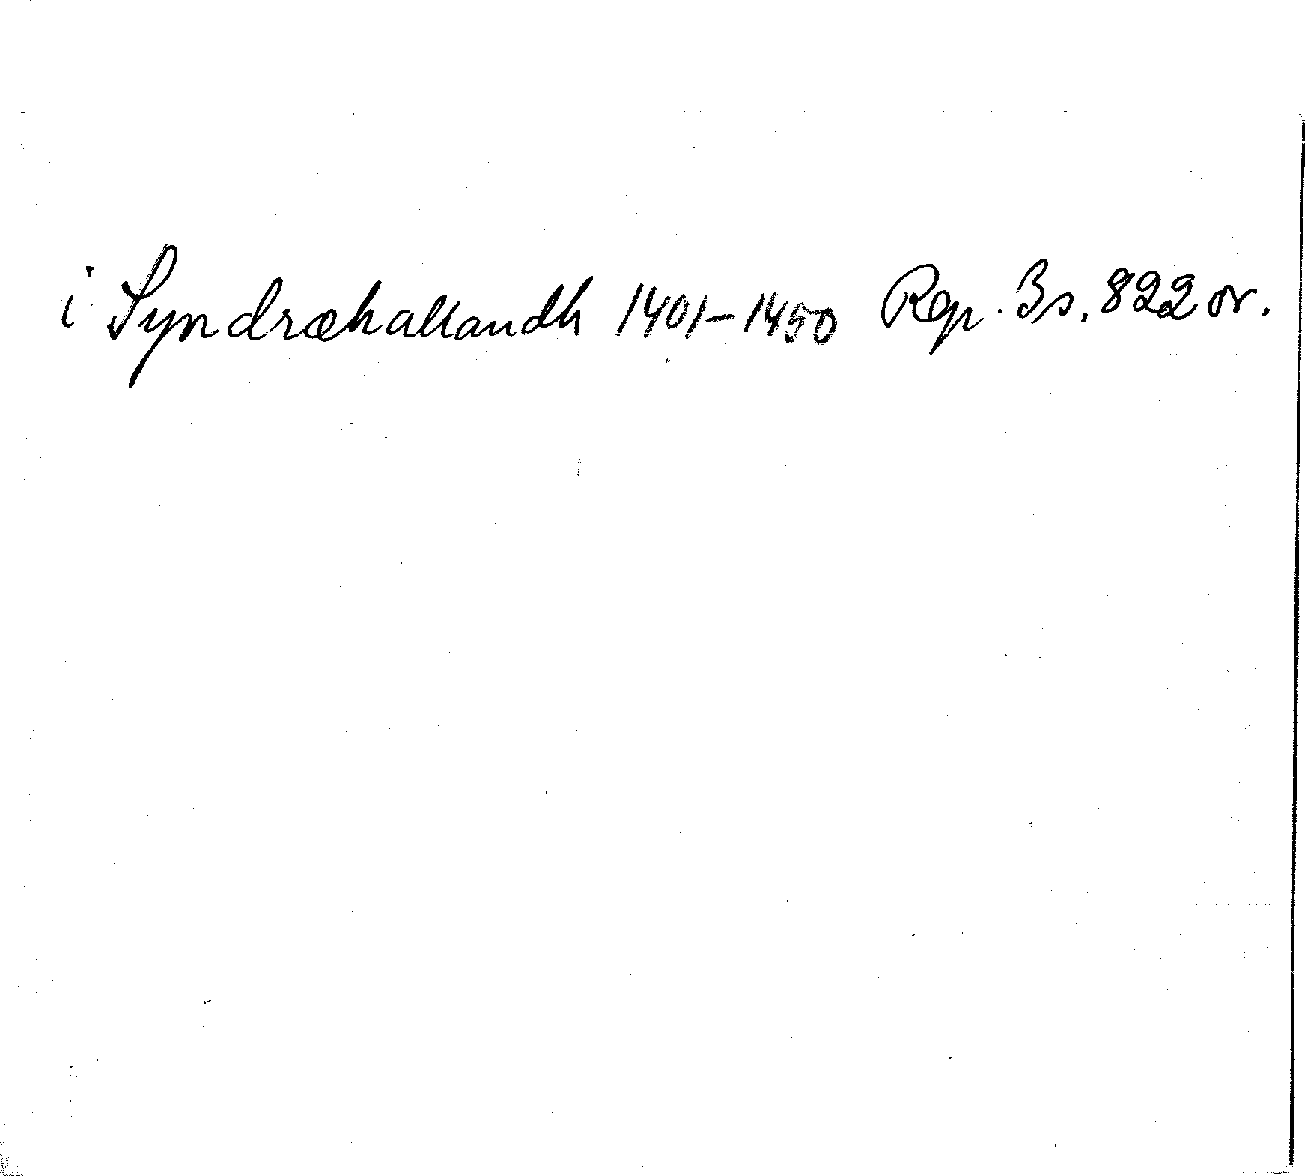 i Syndræhallandh 1401-1450 Rep. 3 s. 822 or.